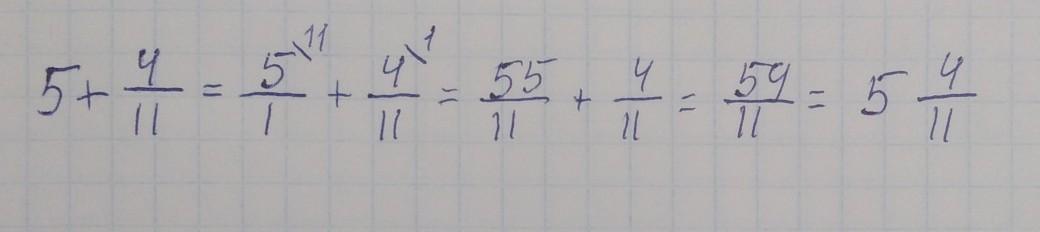 5 + 4/11 = 5\11/1 + 4\1/11 = 55/11 + 4/11 = 59/11 = 5 4/11